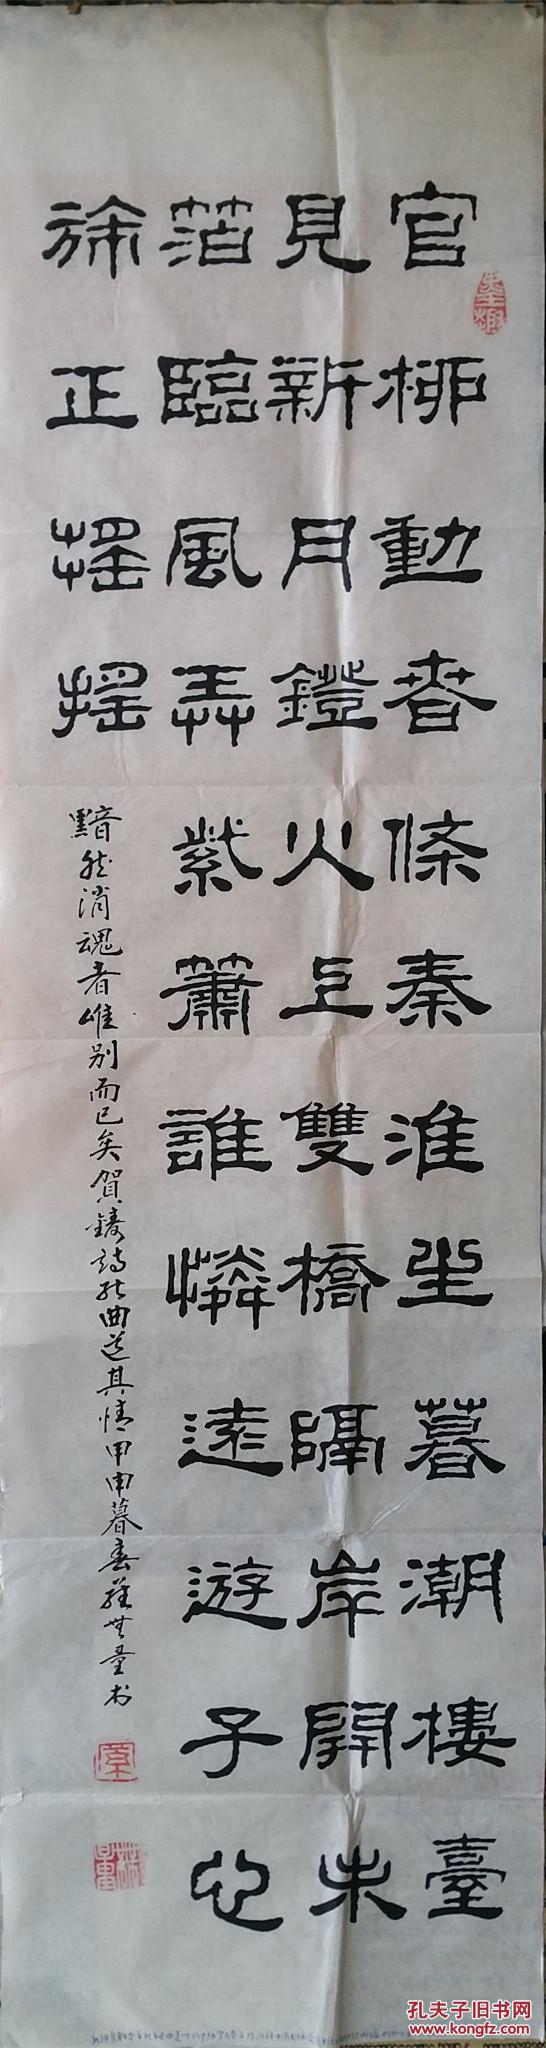 官柳動春條秦淮生暮潮樓臺
見新月鐙火上雙橋隔岸開朱
箔臨風弄紫簫誰憐遠遊子心
旌正搖搖
黯然消魂者唯別而已矣賀鑄詩能曲道其情甲申暮春 书
孔夫子旧书网
www.kongfz.com